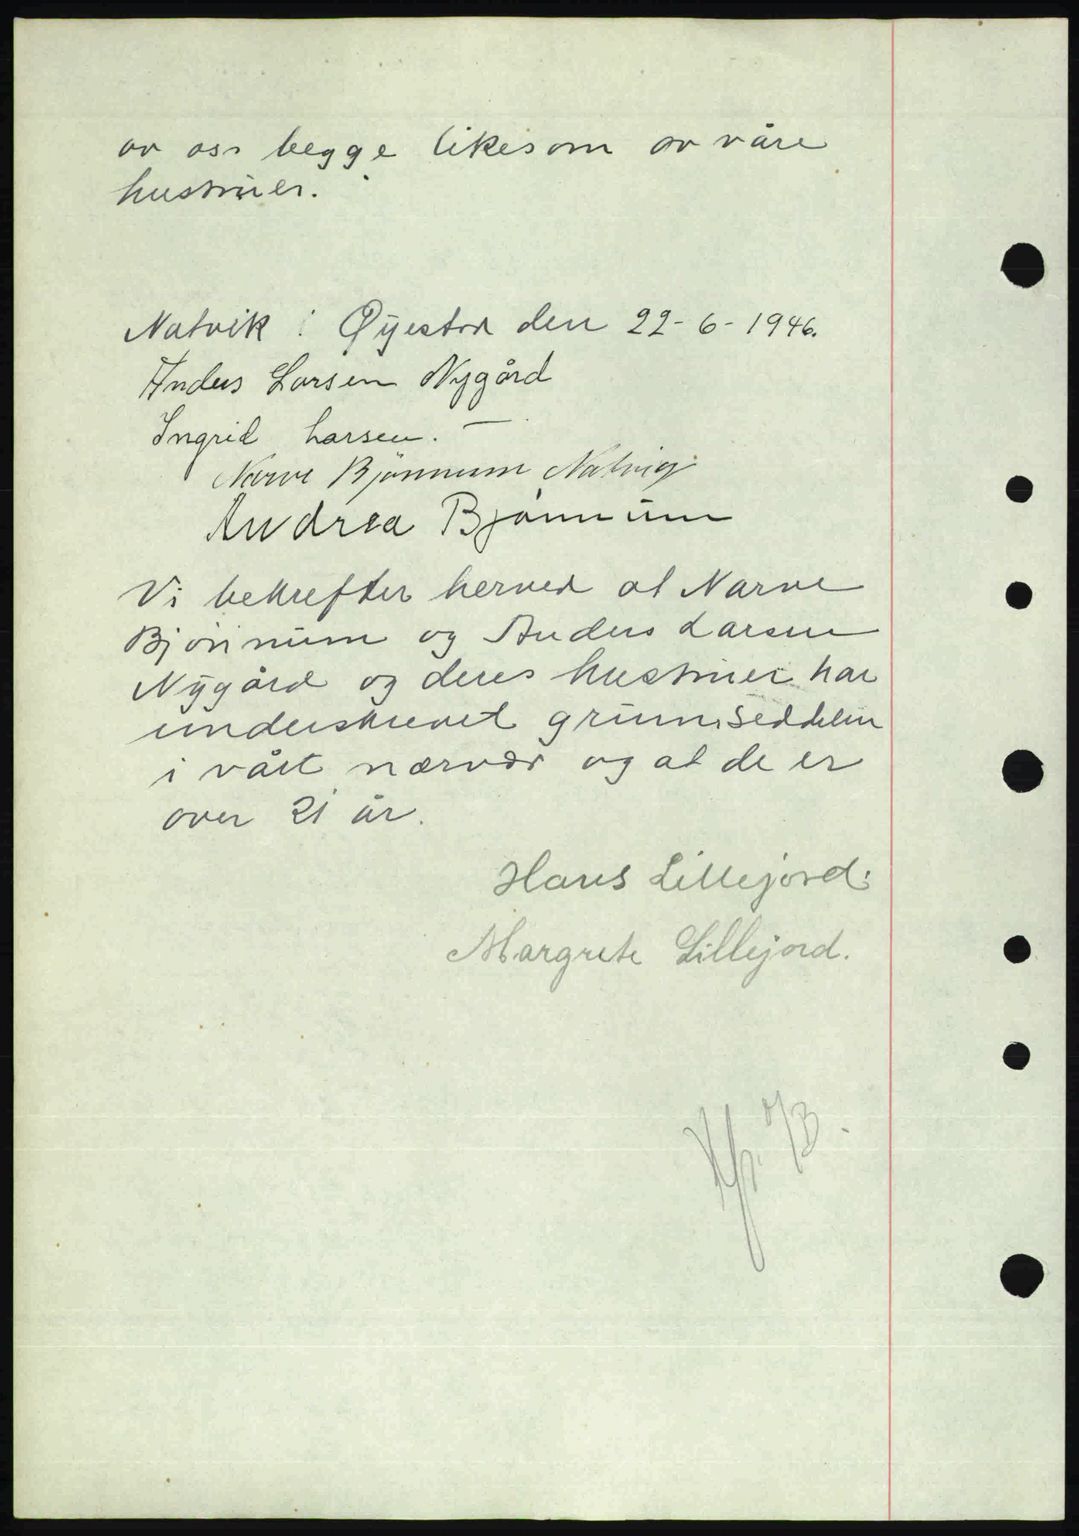 av oss begge likesom av våre
hustruer.
Natvik i Øyestad den 22-6-1946.
Anders Larsen Nygård
Ingrid Larsen. —
Narve Bjønnum Natvig
Andrea Bjønnum
Vi bekrefter herved at Narve
Bjønnum og Anders Larsen
Nygård og deres hustruer har
underskrevet grunnseddelen
i vårt nærvær og at de er
over 21 år.
Hans Lillejord.
Margrete Lillejord.